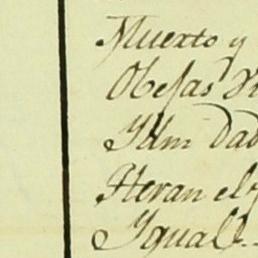 Muerto y
Obejas
Idm Dad
Heran el
Igual.